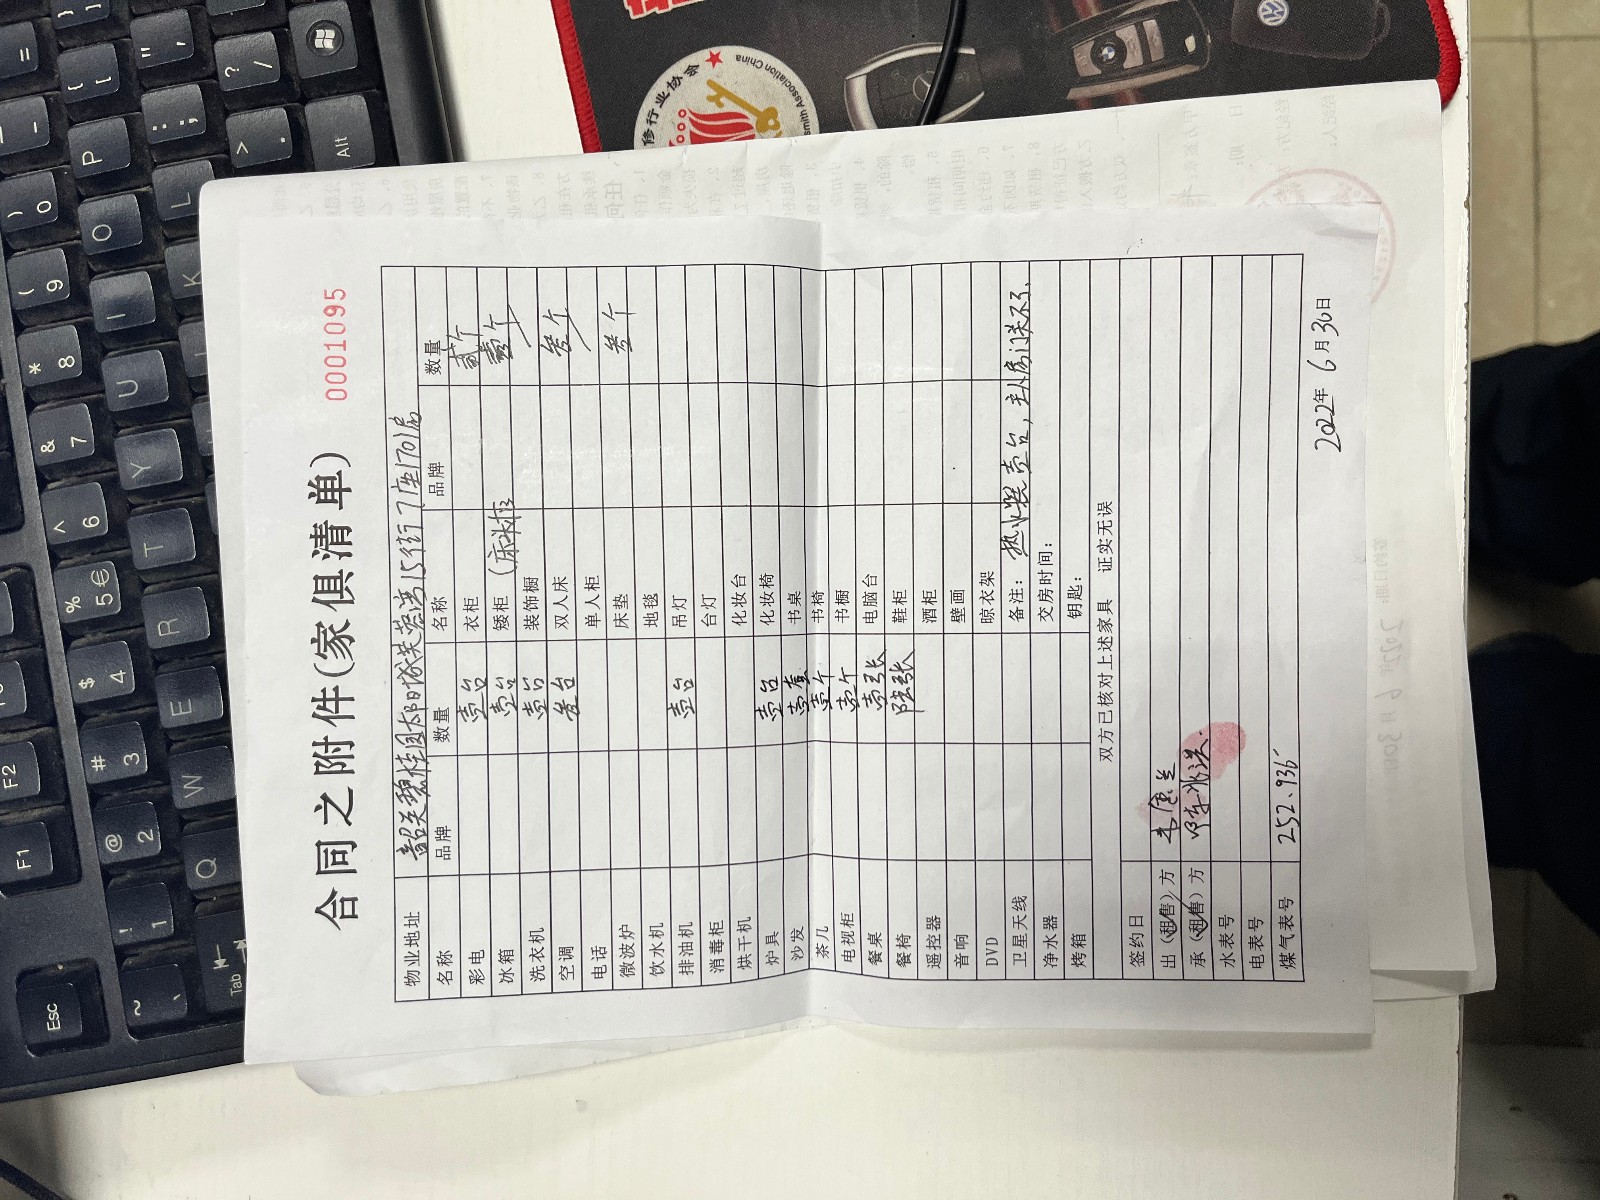 合同之附件(家俱清单)
0001095
物业地址 韶关碧桂园太阳城芙蓉湾15街7座1701房
名称 品牌 数量 名称 品牌 数量
彩电 壹台 衣柜 贰个
冰箱 壹台 矮柜 (床头柜) 壹个
洗衣机 壹台 装饰橱
空调 叁台 双人床 叁个
电话 单人柜
微波炉 床垫 叁个
饮水机 地毯
排油机 壹台 吊灯
消毒柜 台灯
烘干机 化妆台
炉具 壹台 化妆椅
沙发 壹套 书桌
茶几 壹个 书椅
电视柜 壹个 书橱
餐桌 壹张 电脑台
餐椅 陆张 鞋柜
遥控器 酒柜
音响 壁画
DVD 晾衣架
卫星天线 备注: 热水器壹台,主人房门关不了.
净水器 交房时间:
烤箱 钥匙:
双方已核对上述家具 证实无误
签约日
出(租售)方
承(租售)方
水表号
电表号
煤气表号 252.936
2022年 6月30日
Esc
F1
F2
Tab
Alt
修行业协会
smith Association China